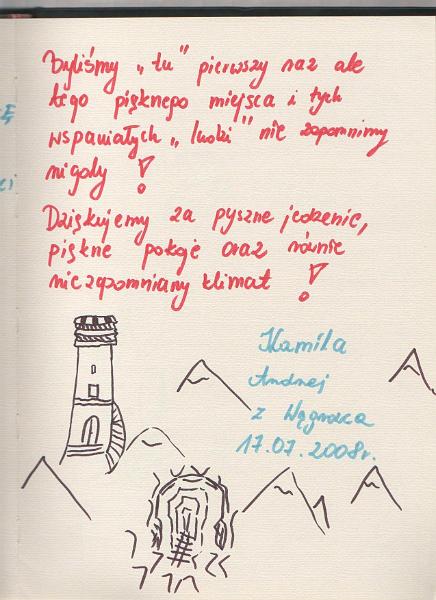 Byliśmy „tu" pierwszy raz ale
tego pięknego miejsca i tych
wspaniałych „ludzi" nie zapomnimy
nigdy !
Dziękujemy za pyszne jedzenie,
piękne pokoje oraz równie
niezapomniany klimat !
Kamila
Andrzej
z Wągrowca
17.07.2008r.